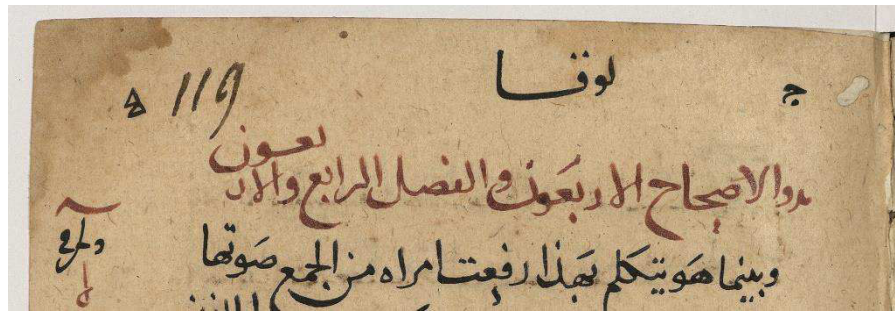 لوقا
119
بدو الاصحاح الاربعون والفصل الرابع والاربعون
وبينما هو يتكلم بهذا رفعت امراه من الجمع صوتها